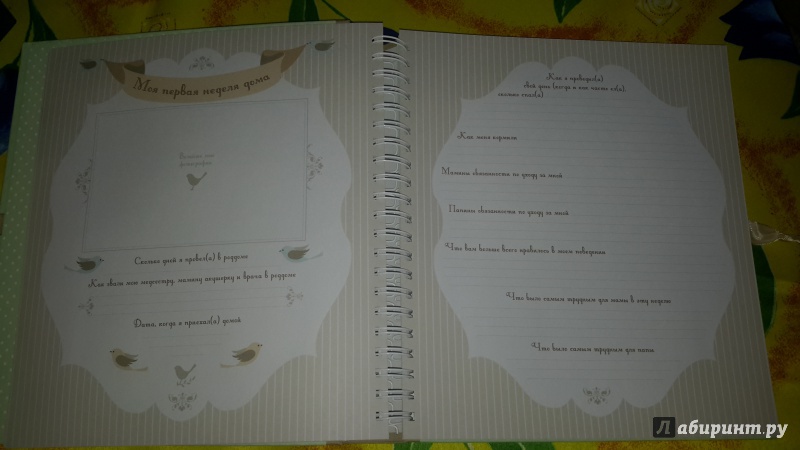 Моя первая неделя дома
Вклейте мою
фотографию
Сколько дней я провел(а) в роддоме
Как звали мою медсестру, мамину акушерку и врача в роддоме
Дата, когда я приехал(а) домой
Как я проводил(а)
свой день (когда и как часто ел(а),
сколько спал(а)
Как меня кормили
Мамины обязанности по уходу за мной
Папины обязанности по уходу за мной
Что вам больше всего нравилось в моем поведении
Что было самым трудным для мамы в эту неделю
Что было самым трудным для папы
Лабиринт.ру